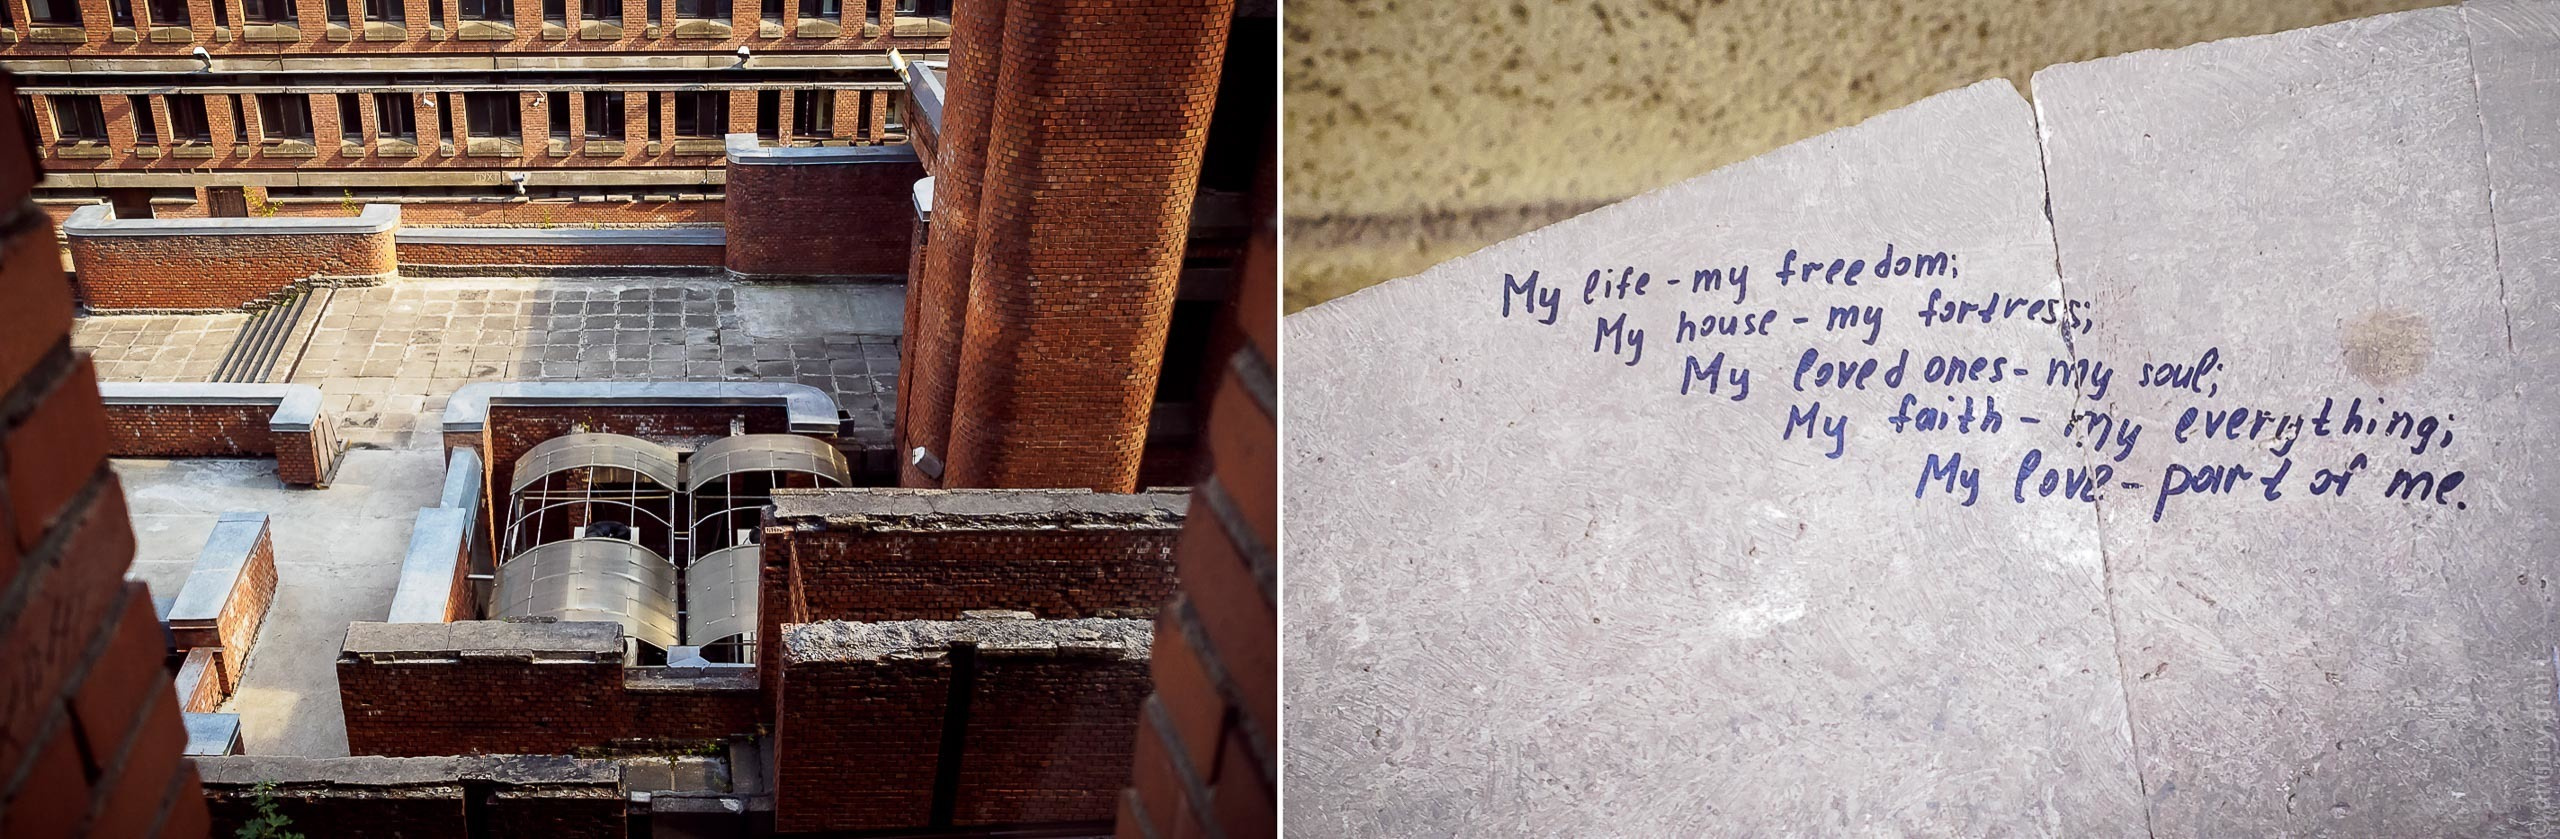 My life - my freedom;
My house - my fortress;
My loved ones - my soul;
My faith - my everything;
My love - part of me.